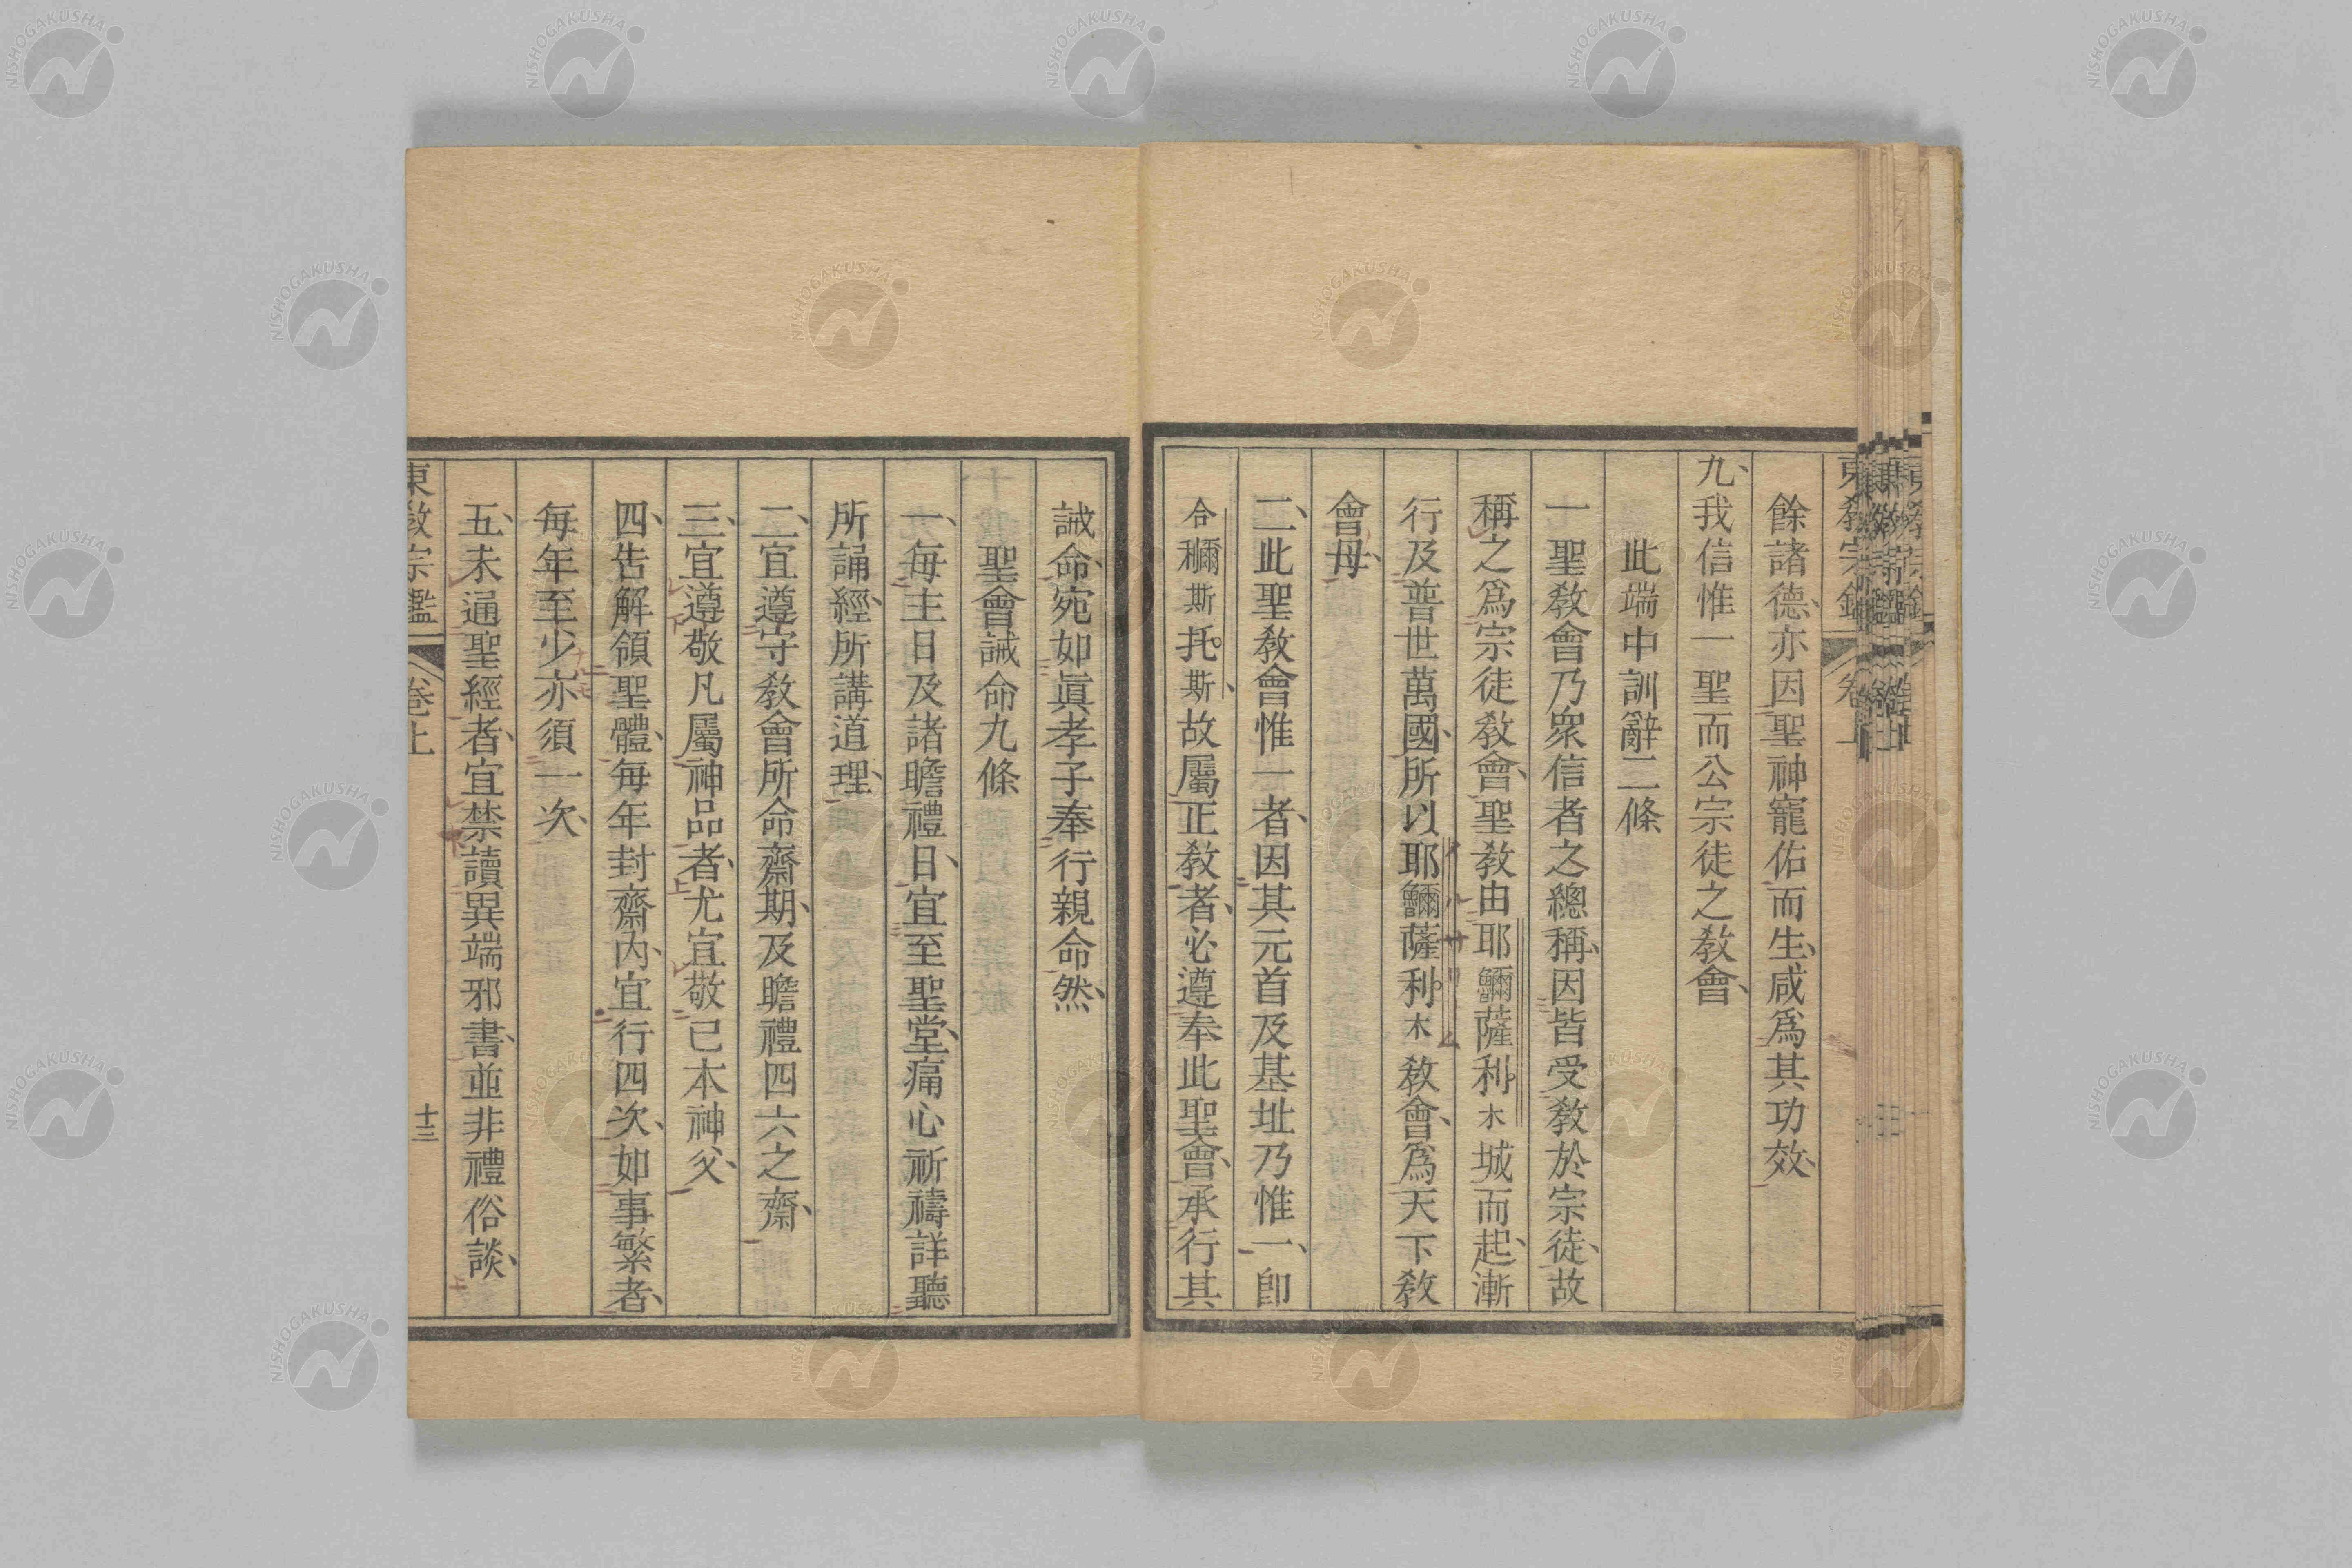 餘諸德、亦因聖神寵佑而生、咸爲其功效、
九、我信惟一聖而公宗徒之教會、
此端中訓辭二條
一聖教會乃衆信者之總稱、因皆受教於宗徒、故
稱之爲宗徒教會、聖教由耶䲘薩利木城而起、漸
行及普世萬國、所以耶䲘薩利木教會、爲天下教
會母、
二、此聖教會惟一者、因其元首及基址乃惟一、卽
合穪斯托斯、故屬正教者、必遵奉此聖會、承行其
誡命、宛如眞孝子奉行親命然、
聖會誡命九條
一、每主日及諸瞻禮日、宜至聖堂、痛心祈禱詳聽
所誦經、所講道理、
二、宜遵守教會所命齋期、及瞻禮四六之齋、
三、宜遵敬凡屬神品者、尤宜敬已本神父、
四、告解領聖體、每年封齋內、宜行四次、如事繁者、
每年至少、亦須一次、
五、未通聖經者、宜禁讀異端邪書、並非禮俗談、
東教宗鑑
卷上
十三
NISHOGAKUSHA